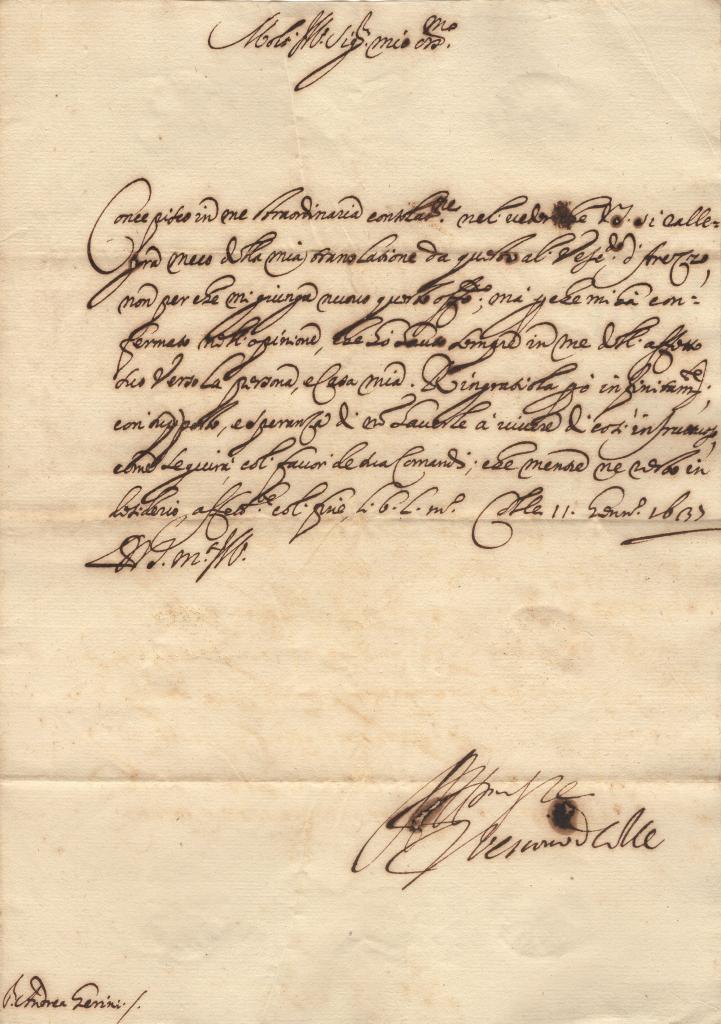 Molt' Ill.re Sig.r mio oss.mo
Concepisco in me straordinaria contolat.ne nel veder che V.S. si ralle=
gra meco della mia translatione da questo al Vesc.do d'Arezzo,
non per che mi giunga nuovo questo off.o; ma p che mi hà con=
fermato nell'opinione, che hò hauto sempre in me dell'affetto
suo Verso la persona, e Casa mia. Ringratiola p ciò infinitam.te;
con supporlo, e speranza di nõ hauerle à uiuere di cosi infruttuoso,
come seguirà col fauor de sua Comandi; che mentre ne resto in
desiderio, affett.te col fine, l. b. l. m. Colle 11. Genn.o 1637
D V.S. m.to Ill.re
Aff.mo
Vescovo di Colle
S. Andrea Gerini /.